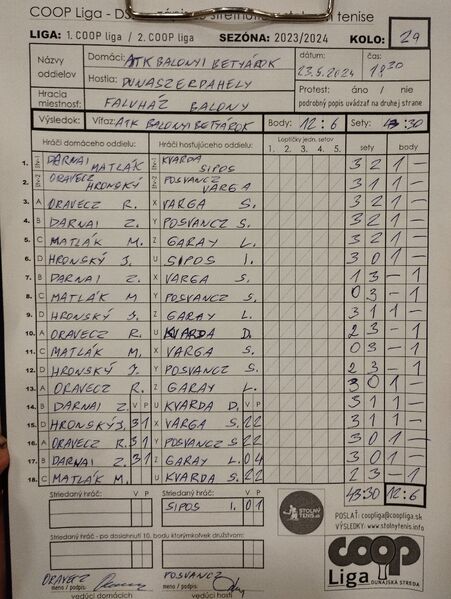 COOP Liga - DS tenise
LIGA: 1. COOP liga / 2. COOP liga SEZÓNA: 2023/2024 KOLO: 29
Názvy oddielov Domáci: ATK BALONYI BETYÁROK dátum: 23.5.2024 čas: 18 30
Hostia: DUNASZERDAHELY Protest: áno / nie
Hracia miestnosť: FALUHÁZ BALONY podrobný popis uvádzať na druhej strane
Výsledok: Víťaz: ATK BALONYI BETYÁROK Body: 12:6 Sety: 43:30
Hráči domáceho oddielu: Hráči hosťujúceho oddielu: Loptičky jedn. setov: 1. 2. 3. 4. 5. sety body
1. DARNAI MATLÁK KVARDA SIPOS 3 2 1 –
2. ORAVECZ HRONSKÝ POSVANCZ VARGA 3 1 1 –
3. A ORAVECZ R. X VARGA S. 3 2 1 –
4. B DARNAI Z. Y POSVANCZ S. 3 2 1 –
5. C MATLÁK M. Z GARAY L. 3 2 1 –
6. D HRONSKÝ J. U SIPOS I. 3 0 1 –
7. B DARNAI Z. X VARGA S. 1 3 – 1
8. C MATLÁK M Y POSVANCZ S. 0 3 – 1
9. D HRONSKÝ J. Z GARAY L. 3 1 1 –
10. A ORAVECZ R. U KVARDA D. 2 3 – 1
11. C MATLÁK M. X VARGA S. 0 3 – 1
12. D HRONSKÝ J. Y POSVANCZ S. 2 3 – 1
13. A ORAVECZ R. Z GARAY L. 3 0 1 –
14. B DARNAI Z. V P U KVARDA D. V P 3 1 1 –
15. D HRONSKÝ J. 3 1 X VARGA S. 2 2 3 1 1 –
16. A ORAVECZ R. 3 1 Y POSVANCZ S 2 2 3 0 1 –
17. B DARNAI Z. 3 1 Z GARAY L. 0 4 3 0 1 –
18. C MATLÁK M. U KVARDA S. 2 2 2 3 – 1
Striedaný hráč: V P Striedaný hráč: V P 43:30 12:6
SIPOS I. 0 1
STOLNÝ TENIS.sk
POSLAŤ: coopliga@coopliga.sk
VÝSLEDKY: www.stolnytenis.info
Striedaný hráč - po dosiahnutí 10. bodu ktorýmkoľvek družstvom:
coop Liga DUNAJSKÁ STREDA
ORAVECZ POSVANCZ
meno / podpis: meno / podpis:
vedúci domácich vedúci hostí